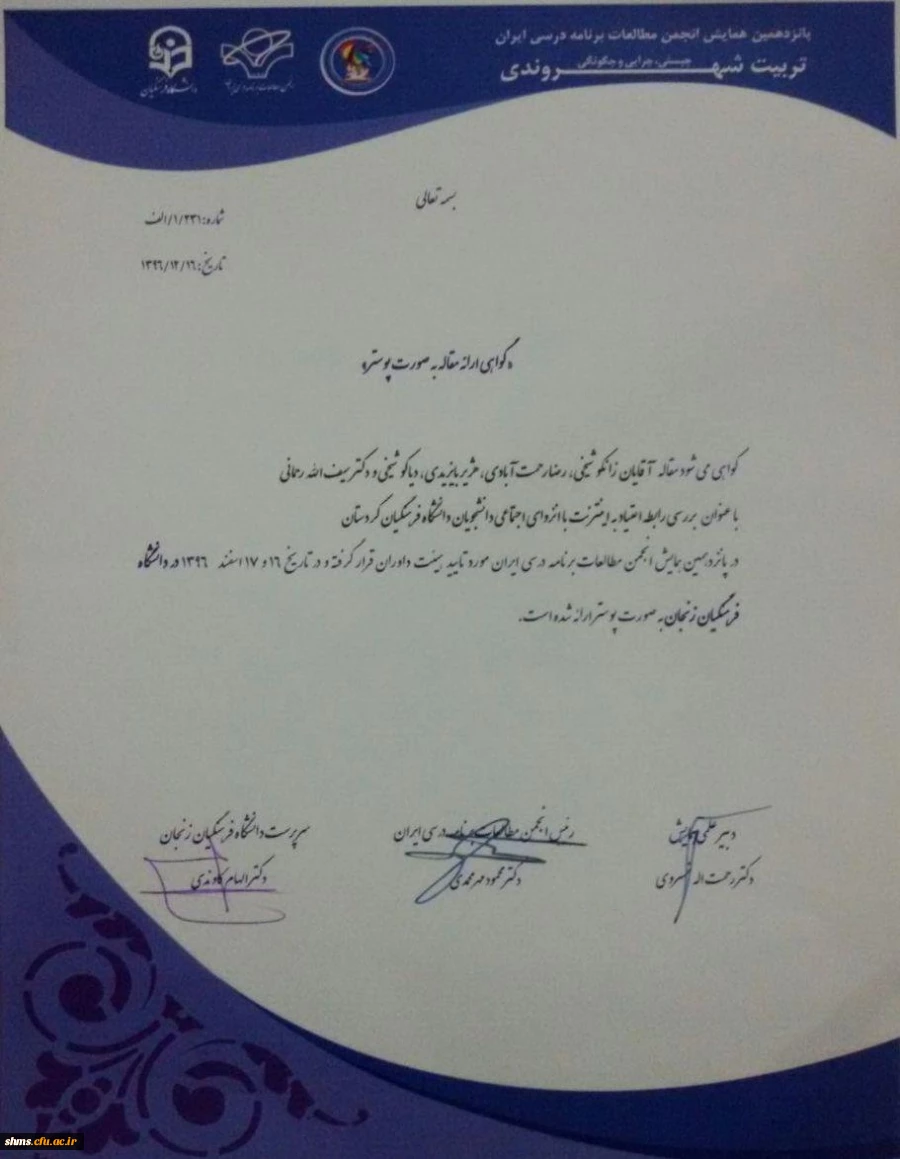 پانزدهمین همایش انجمن مطالعات برنامه درسی ایران
تربیت شهروندی
چیستی، چرایی و چگونگی
انجمن مطالعات برنامه درسی ایران
دانشگاه فرهنگیان
بسمه تعالی
شماره: ۱/۲۳۱/الف
تاریخ: ۱۳۹۶/۱۲/۱۶
«گواهی ارائه مقاله به صورت پوستر»
گواهی می شود مقاله آقایان زانکو شیخی، رضا رحمت آبادی، هژیر بایزیدی، دیاکو شیخی و دکتر سیف الله رحمانی
با عنوان بررسی رابطه اعتیاد به اینترنت با انزوای اجتماعی دانشجویان دانشگاه فرهنگیان کردستان
در پانزدهمین همایش انجمن مطالعات برنامه درسی ایران مورد تایید هیئت داوران قرار گرفته و در تاریخ ۱۶ و ۱۷ اسفند ۱۳۹۶ در دانشگاه
فرهنگیان زنجان به صورت پوستر ارائه شده است.
دبیر علمی همایش
دکتر رحمت اله خسروی
رئیس انجمن مطالعات برنامه درسی ایران
دکتر محمود مهرمحمدی
سرپرست دانشگاه فرهنگیان زنجان
دکتر الهام کاوندی
shms.cfu.ac.ir